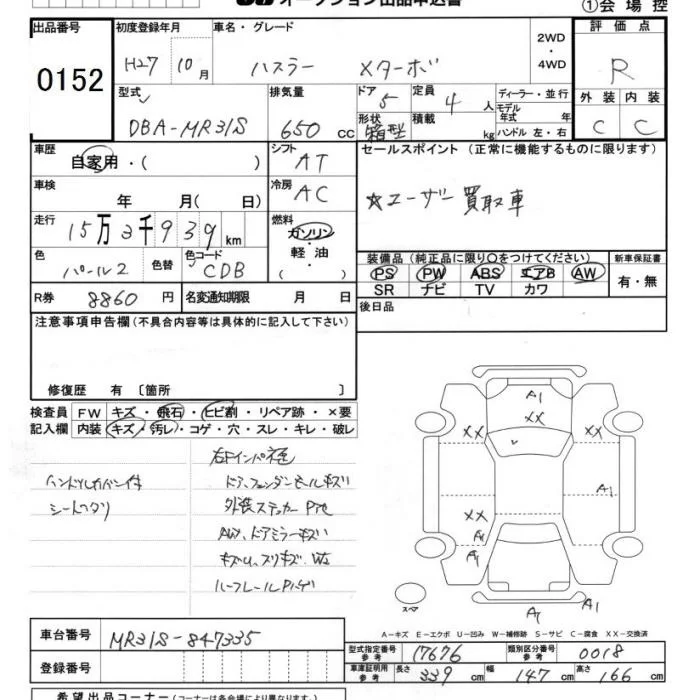 オークション出品申込書
①会場控
出品番号 初度登録年月 車名・グレード 評価点
0152
H27 10月 ハスラー Xターボ 2WD・4WD R
型式 排気量 ドア 定員 ディーラー・並行 外装 内装
DBA-MR31S 650cc 5 4人 モデル年式 年 C C
形状 箱型 積載 kg ハンドル 左・右
車歴 シフト セールスポイント (正常に機能するものに限ります)
自家用・( ) AT
車検 冷房
年 月( 日) AC ☆ユーザー買取車
走行 燃料
15万3千939km ガソリン・軽油( )
色 色替 色コード 装備品(純正品に限り○をつけてください) 新車保証書
パール2 CDB PS PW ABS エアB AW 有・無
SR ナビ TV カワ
R券 8860円 名変通知期限 月 日
後日品
注意事項申告欄(不具合内容等は具体的に記入して下さい)
修復歴 有〔箇所 〕
検査員 FW キズ・飛石・ヒビ割・リペア跡・×要
記入欄 内装 キズ・汚レ・コゲ・穴・スレ・キレ・破レ
右Fインパネ色
ハンドルカバー付 ドア、フェンダーモールキズ
シートヘタリ 外装ステッカー
AW、ドアミラーキズ
キズU、スリキズ、
ルーフレール
A1
XX
XX XX
A1
XX
A1
A1
A1 A1
スペア
A-キズ E-エクボ U-凹み W-補修跡 S-サビ C-腐食 XX-交換済
車台番号 MR31S-847335
型式指定番号 参考 17676 類別区分番号 参考 0018
登録番号
車庫証明用 参考 長さ 339cm 幅 147cm 高さ 166cm
希望出品コーナー(コーナーは各会場により異なります)